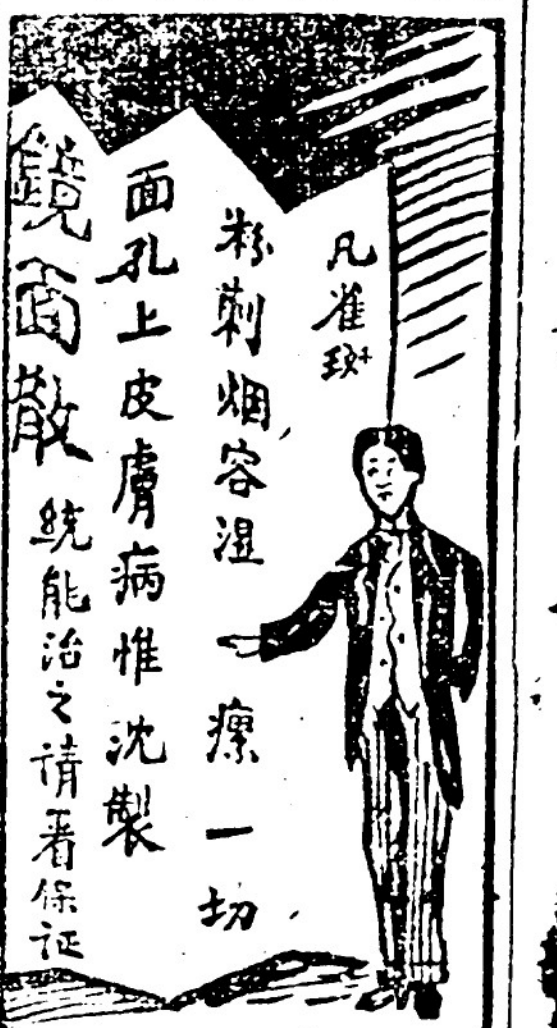 凡雀斑
粉刺烟容湿瘰一切
面孔上皮膚病惟沈製
鏡面散統能治之請看保証